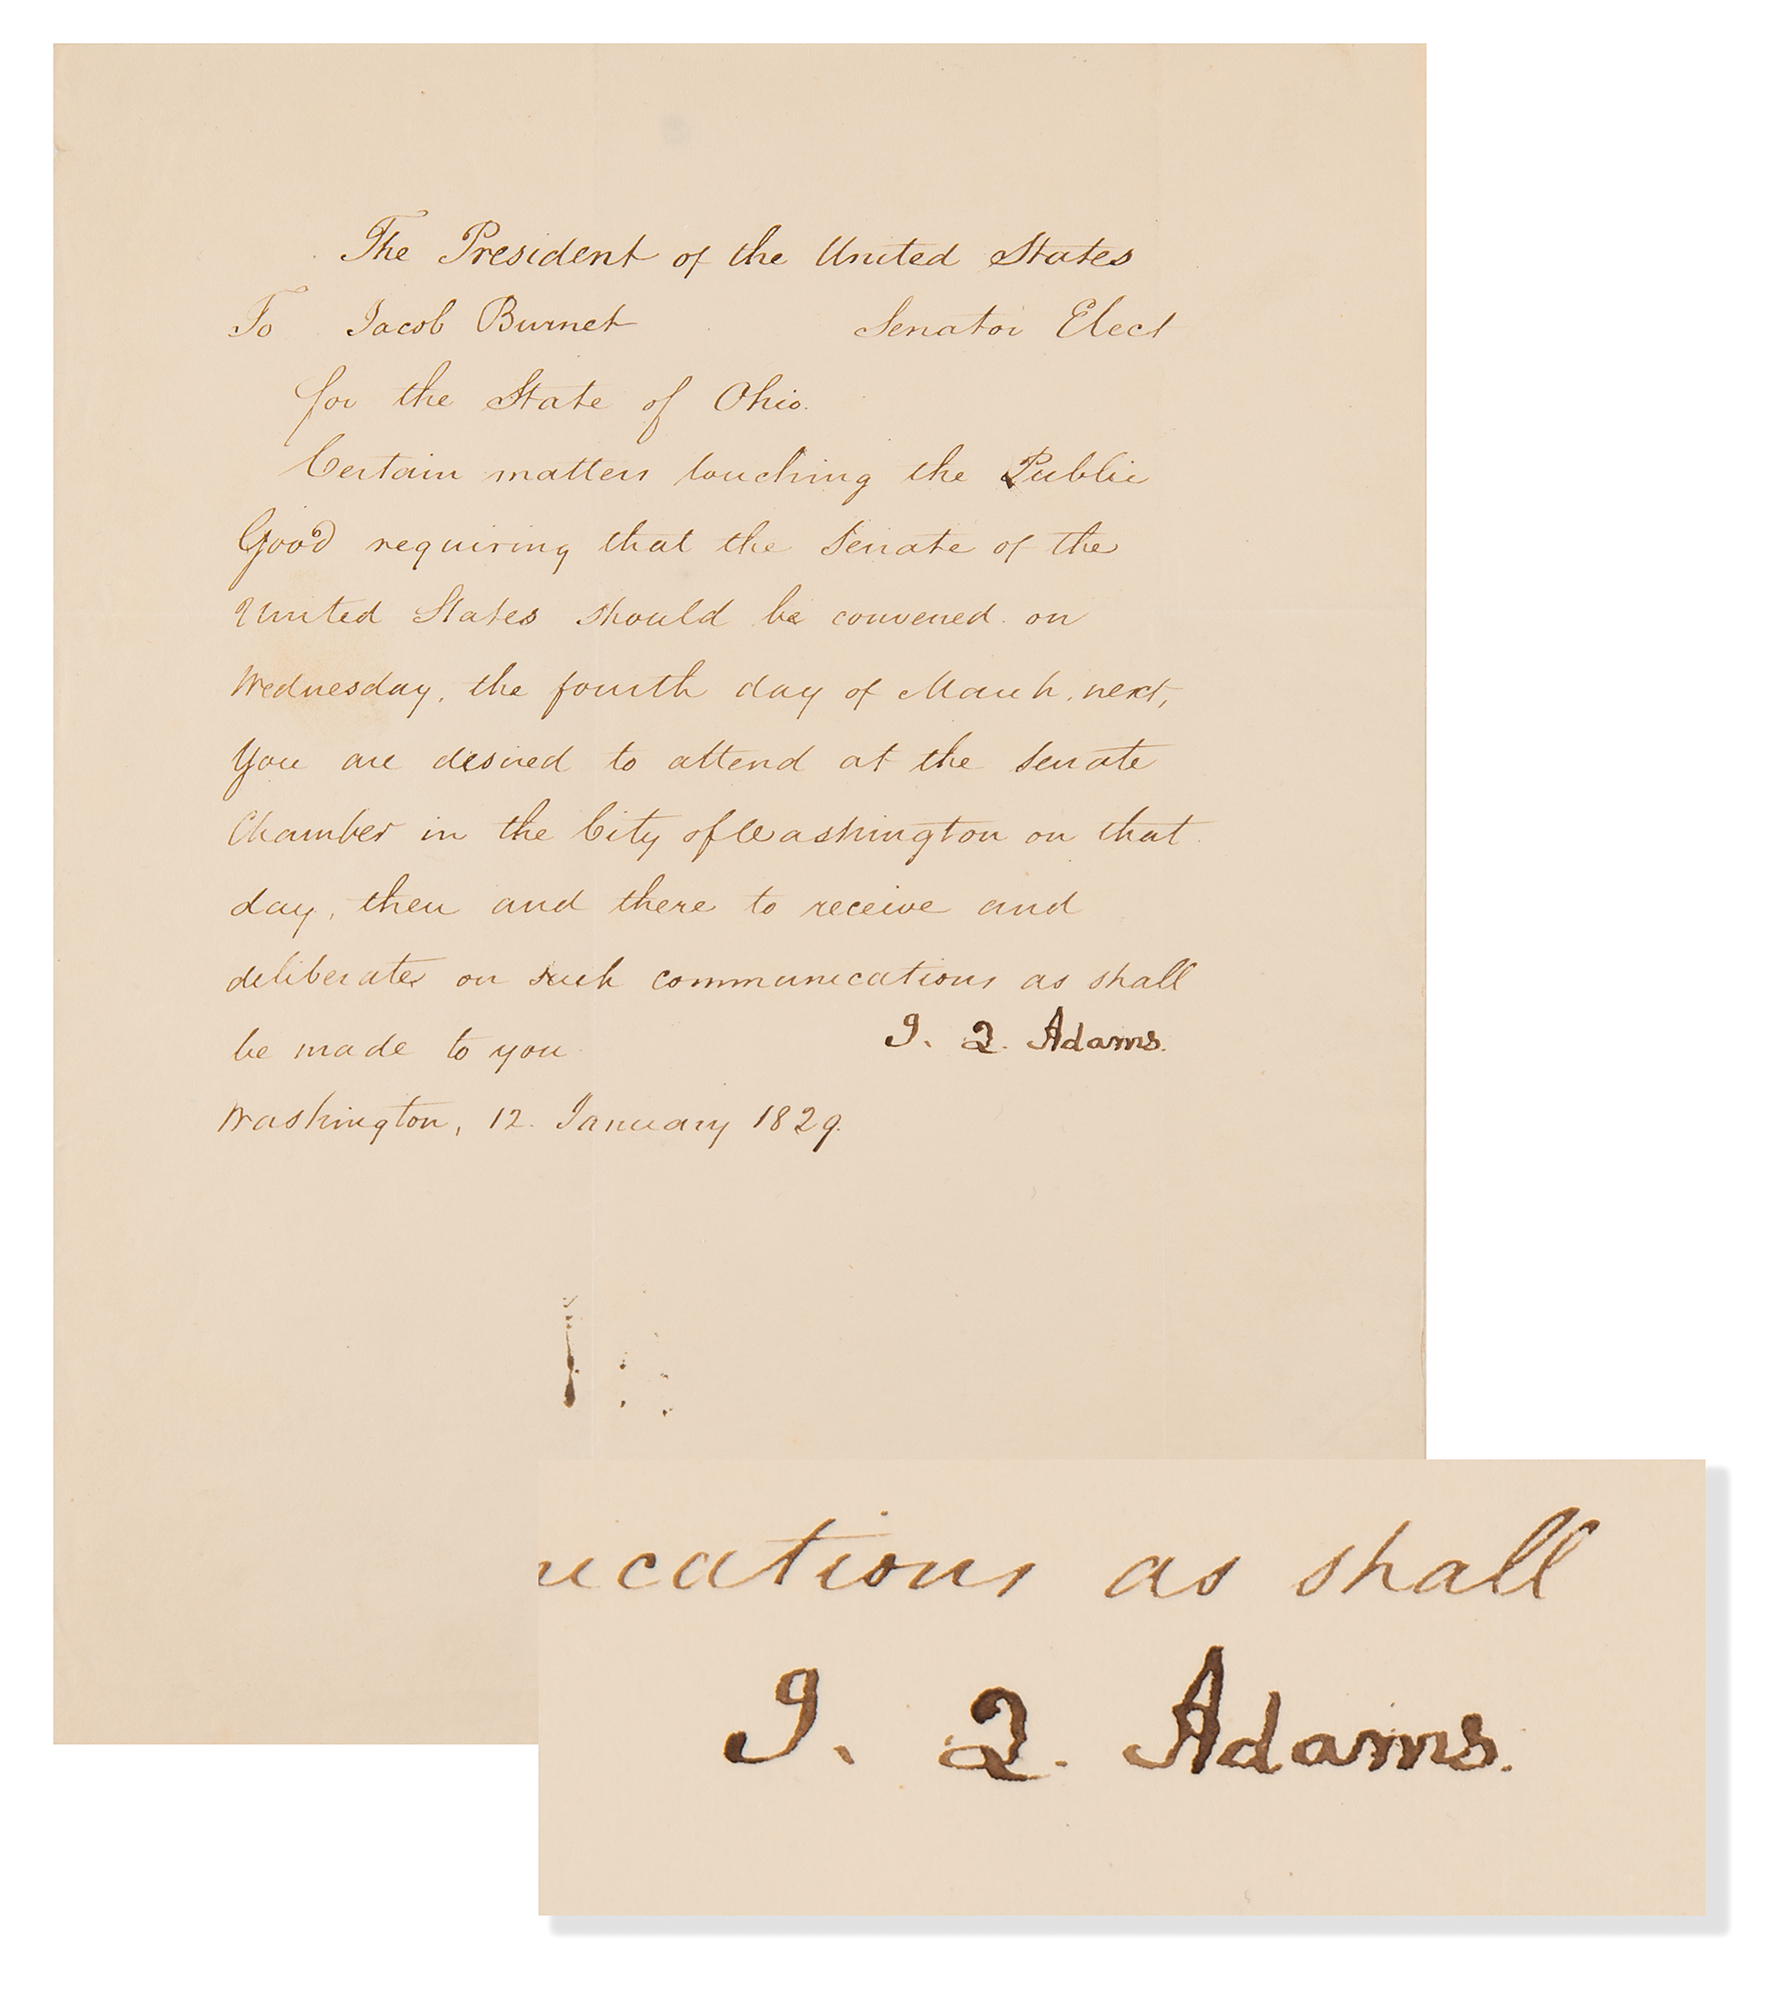 The President of the United States
To Jacob Burnet Senator Elect
for the State of Ohio.
Certain matters touching the Public
Good requiring that the Senate of the
United States should be convened on
Wednesday, the fourth day of March, next,
You are desired to attend at the Senate
Chamber in the City of Washington on that
day, then and there to receive and
deliberate on such communications as shall
be made to you
J. Q. Adams.
Washington, 12. January 1829.
ications as shall
J. Q. Adams.